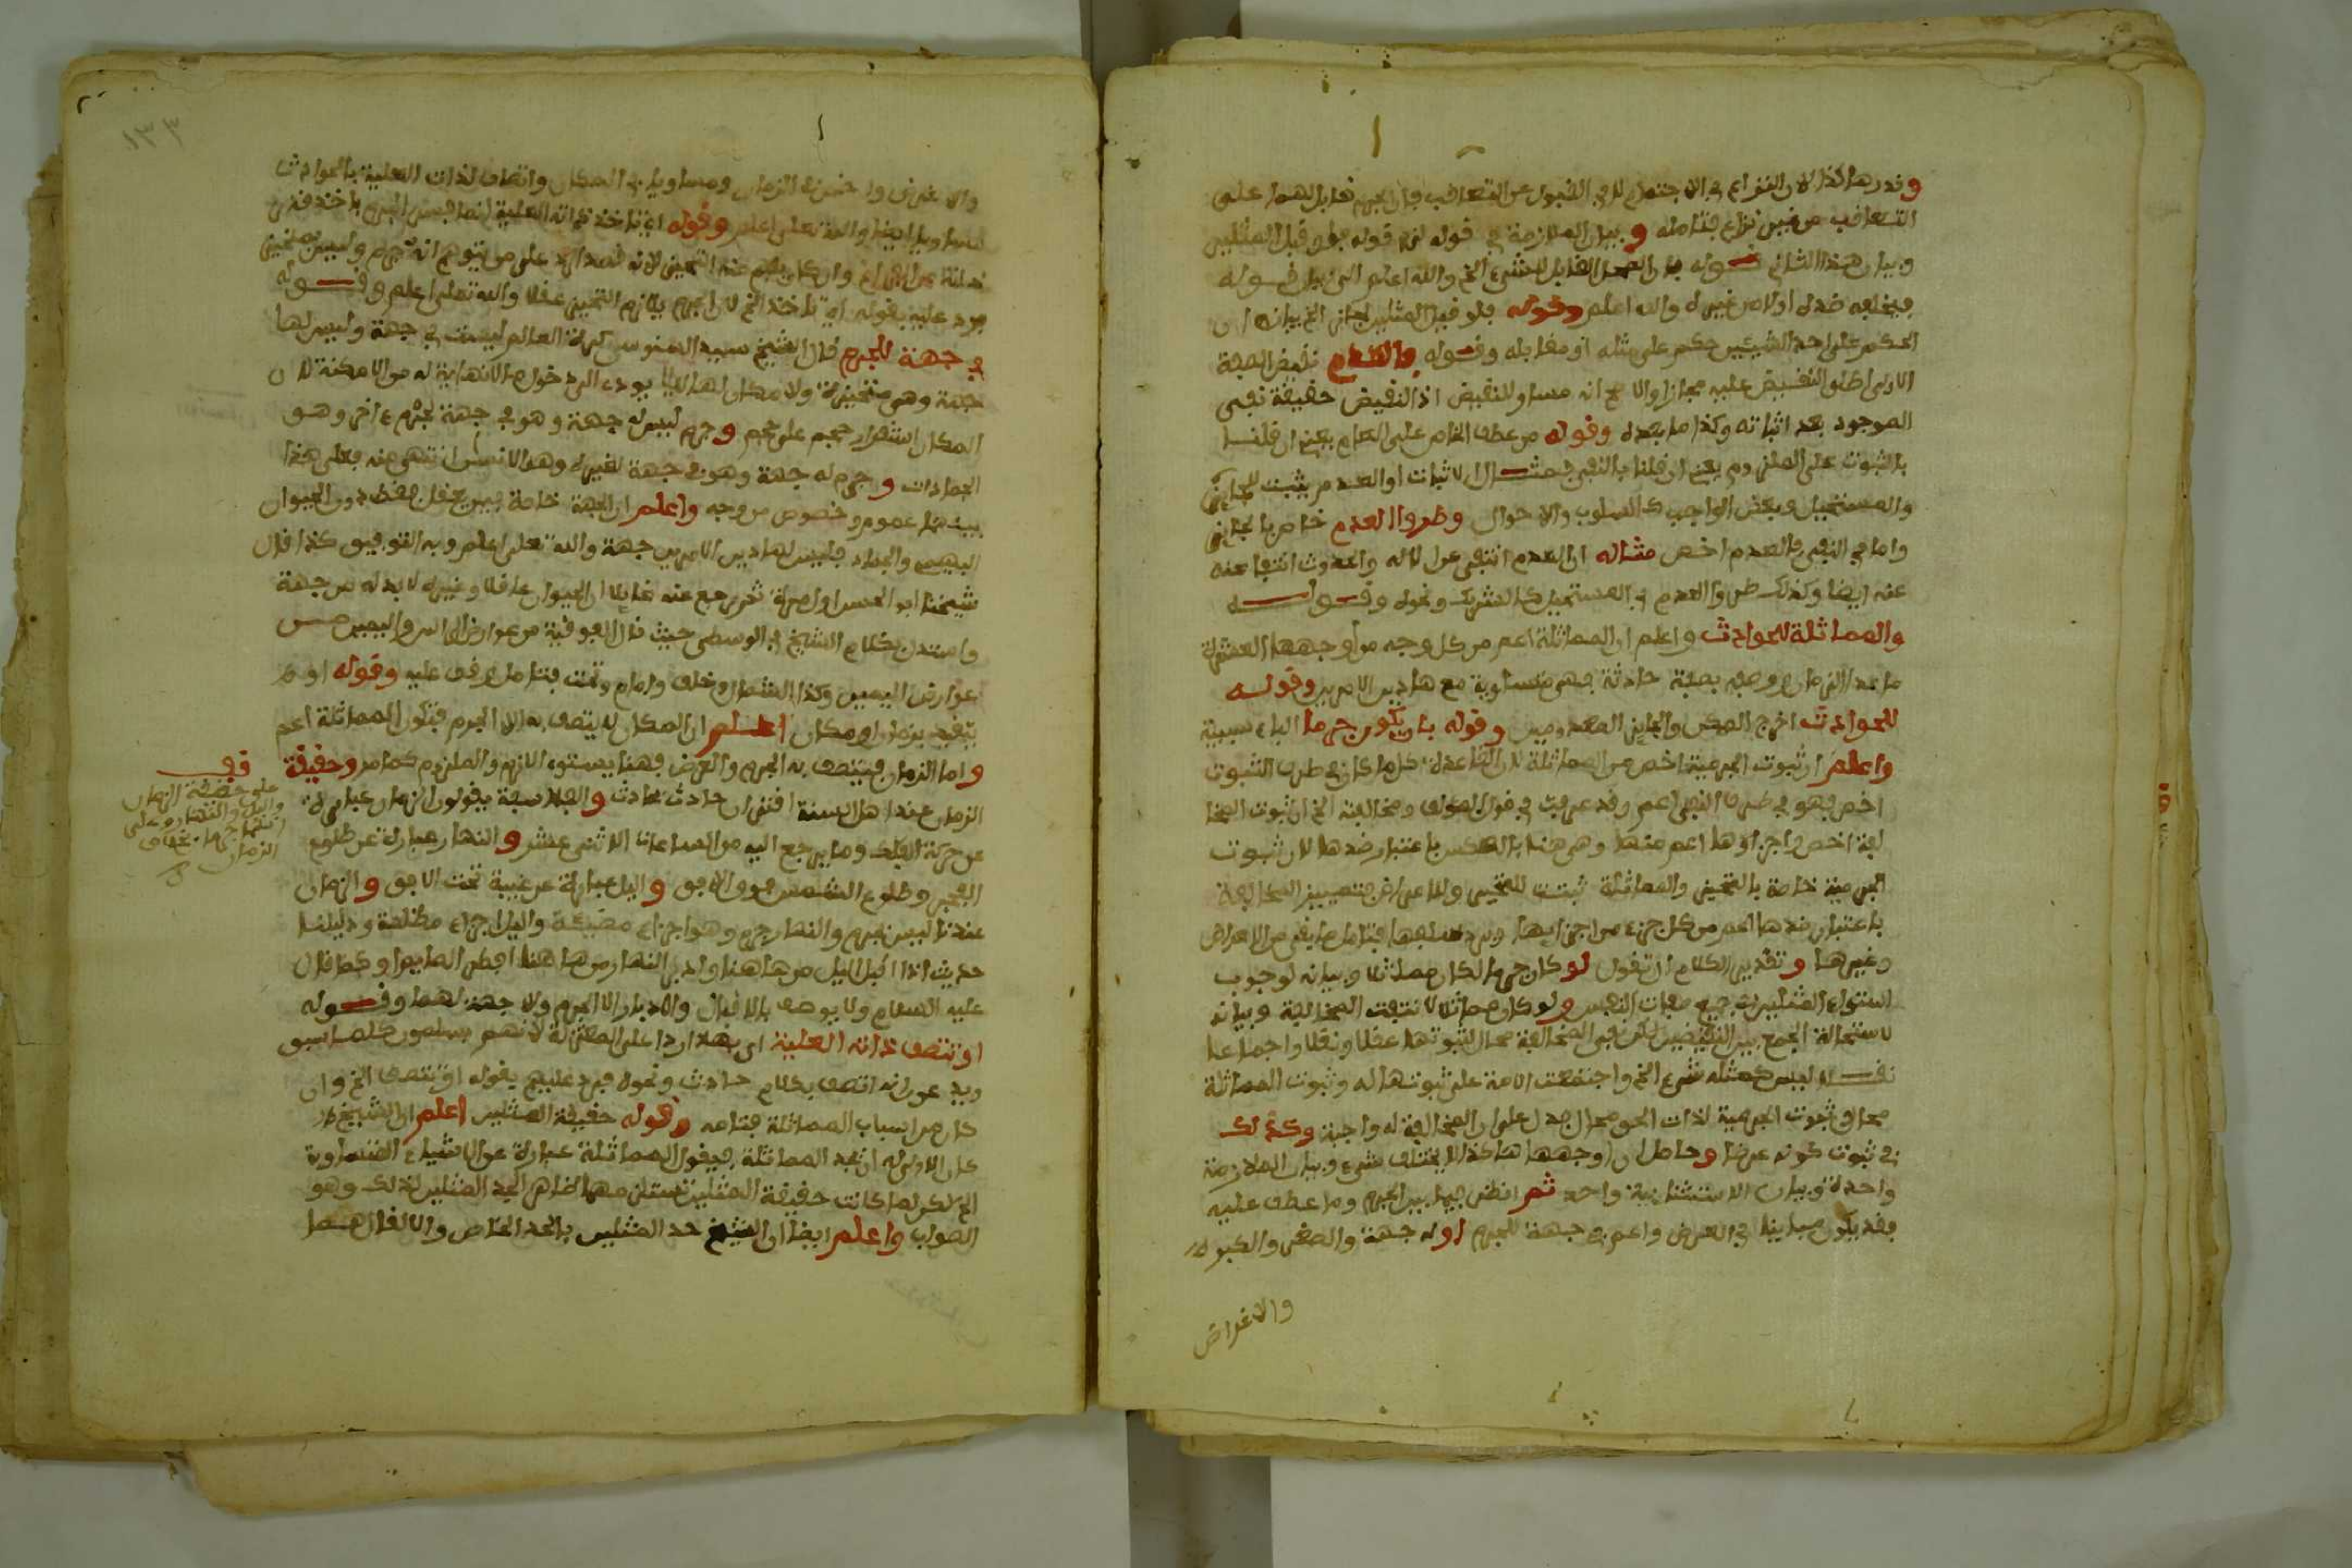 وقدرها كذا لان النزاع في الاجتماع لا في القبول عن التعاقب فان الجرم قابل لهما على
التعاقب من غير نزاع فتامله و بيان الملازمة في قوله لزم قوله فلو قبل المثلين
وبيان هذا الثاني قوله بان المحل القابل للشيء الخ والله اعلم الى قوله
فيخلفه ضده اولا من غيره والله اعلم وقوله فلو قبل المثلين لجاز الخ بيانه ان
الحكم على احد الشيئين حكم على مثله او مقابله وقوله والعدم نقيض الصفة
الاولى اطلق النقيض عليه مجازا والا صح انه مساو للنقيض اذ النقيض حقيقة نفي
الموجود بعد اثباته وكذا ما بعده وقوله من عطف الخاص على العام يعني ان قلنا
بالثبوت على الملزوم يعني ان قلنا بالنفي فمثال الاثبات او العدم يثبت للجائز
والمستحيل وبعض الواجب كالسلوب والاحوال وطروا العدم خاص بالجائز
واما في النفي فالعدم اخص مثاله ان العدم انتفى عن الاله والحدوث انتفا عنه
عنه ايضا وكذلك طروا العدم في المستحيل كالشريك ونحوه وقوله
والمماثلة للحوادث واعلم ان المماثلة اعم من كل وجه من اوجهها العشرة
ما عدا الزمان ووصفه بصفة حادثة فهي متساوية مع هاذين الامرين وقوله
للحوادث اخرج الممكن والجايز المعدومين وقوله بان يكون جرما الباء سببية
واعلم ان ثبوت الجرمية اخص من المماثلة لان القاعدة كلما كان في طرف الثبوت
اخص فهو في طرف النفي اعم وقد عرفت في قول المؤلف ومخالفته الخ ان ثبوت المخا
لفة اخص واجزاؤها اعم منها وهي هنا بالعكس باعتبار ضدها لان ثبوت
الجرمية خاصة بالتحيز والمماثلة ثبتت للتحيز وللاعراض فتصير المخالفة
باعتبار ضدها اعم من كل جزء من اجزايها فتامل ما بقي من الاعراض
وغيرها و تقدير الكلام ان تقول لو كان جرما لكان مماثلا وبيانه لوجوب
استواء المثلين في جميع صفات النفس ولو كان مماثلا لانتفت المخالفة وبيانه
لاستحالة الجمع بين النقيضين لكن نفي المخالفة محال لثبوتها عقلا ونقلا واجماعا
نقلا ليس كمثله شيء الخ واجتمعت الامة على ثبوتها له وثبوت المماثلة
محال فثبوت الجرمية لذات الحق محال فدل على ان المخالفة له واجبة وكذلك
في ثبوت كونه عرضا وحاصل ان اوجهها هاكذا لا يختلف شيء وبيان الملازمة
واحدة وبيان الاستثنايية واحد ثم انظر فيما بين الجرم وما عطف عليه
فقد يكون مباينا في العرض واعم في جهة للجرم اوله جهة والصغر والكبر لا
والاغراض
١٣٣
والاغراض واخص في الزمان ومساويا في المكان واتصاف لذات العلية بالحوادث
مساويا ايضا والله تعلى اعلم وقوله اي تاخذ ذاته العلية انما فسر الجرم باخذ قدر
ذاته من الفراغ وان كان يفهم منه التحيز لانه قصد الرد على من يتوهم انه جرم وليس بمتحيز
يرد عليه بقوله اي تاخذ الخ لان الجرم يلازم التحيز عقلا والله تعلى اعلم وقوله
في جهة للجرم قال الشيخ سيد السنوسي كرة العالم ليست في جهة وليس لها
جهة وهي متحيزة ولا مكان لها لئلا يودي الى دخول ما لانهاية له من الامكنة لان
المكان استقرار جرم على جرم و جرم ليس له جهة وهو في جهة لجرم ءاخر وهو
الجمادات و جرم له جهة وهو في جهة لغيره وهو الانسان انتهى منه فعلى هذا
بينهما عموم وخصوص من وجه واعلم ان الجهة خاصة بمن يعقل فقط دون الحيوان
البهيمي والجماد فليس لهاذين الامرين جهة والله تعلى اعلم وبه التوفيق كذا قال
شيخنا ابو الحسن اول مرة ثم رجع عنه قايلا ان الحيوان عاقلا وغيره لا بد له من جهة
واستدل بكلام الشيخ في الوسطى حيث قال الفوقية من عوارض الراس واليمين من
عوارض اليمين وكذا الشمال وخلف وامام وتحت فتامل وقف عليه وقوله او
يتقيد بزمان او مكان اعلم ان المكان لا يتصف به الا الجرم فتكون المماثلة اعم
واما الزمان فيتصف به الجرم والعرض فهنا يستوي اللازم والملزوم كما مر وحقيقة
الزمان عند اهل السنة اقتران حادث بحادث و الفلاسفة يقولون الزمان عبارة
عن حركة الفلك وما يرجع اليه من الساعات الاثني عشر و النهار عبارة عن طلوع
الفجر وطلوع الشمس فوق الافق و اليل عبارة عن غيبة تحت الافق و الزمان
عندنا ليس بجرم والنهار جرم وهو اجزاء مضيئة واليل اجزاء مظلمة ودليلنا
حديث اذا اقبل اليل من هاهنا وادبر النهار من هاهنا افطر الصايم او كما قال
عليه السلام ولا يوصف بالاقبال والادبار الا الجرم ولا جهة لهما وقوله
او تتصف ذاته العلية اي بهذا ردا على المعتزلة لانهم يسلمون كلما سبق
ويدعون انه اتصف بكلام حادث ونحوه فيرد عليهم بقوله او تتصف الخ وان
كان من اسباب المماثلة فتامله وقوله حقيقة المثلين اعلم ان الشيخ
كان الاولى له ان يحد المماثلة فيقول المماثلة عبارة عن الاشياء المتساوية
الخ لكن لما كانت حقيقة المثلين تستلزمها ظاهر الحد المثلين لذلك وهو
الصواب واعلم ايضا ان الشيخ حد المثلين بالحد الخاص والا لقال هما
قف
على حقيقة الزمان
واليل والنهار وعلى
انهما جرمان بخلاف
الزمان